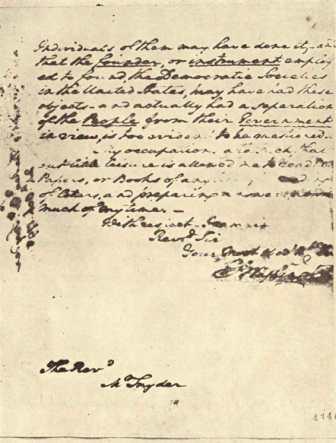 Individuals of them may have done it, and
that the founder, or instrument employ
ed to found, the Democratic Societies
in the United States, may have had these
objects - and actually had a separation
of the People from their Government
in view, is too evident to be questioned.
My occupations are such, that
but little leisure is allowed me to read News
Papers, or Books of any
of letters, and preparing
much of my time. -
With respect, I am
Revd Sir
Your Most Obedt
Go Washington
The Revd
Mr Snyder